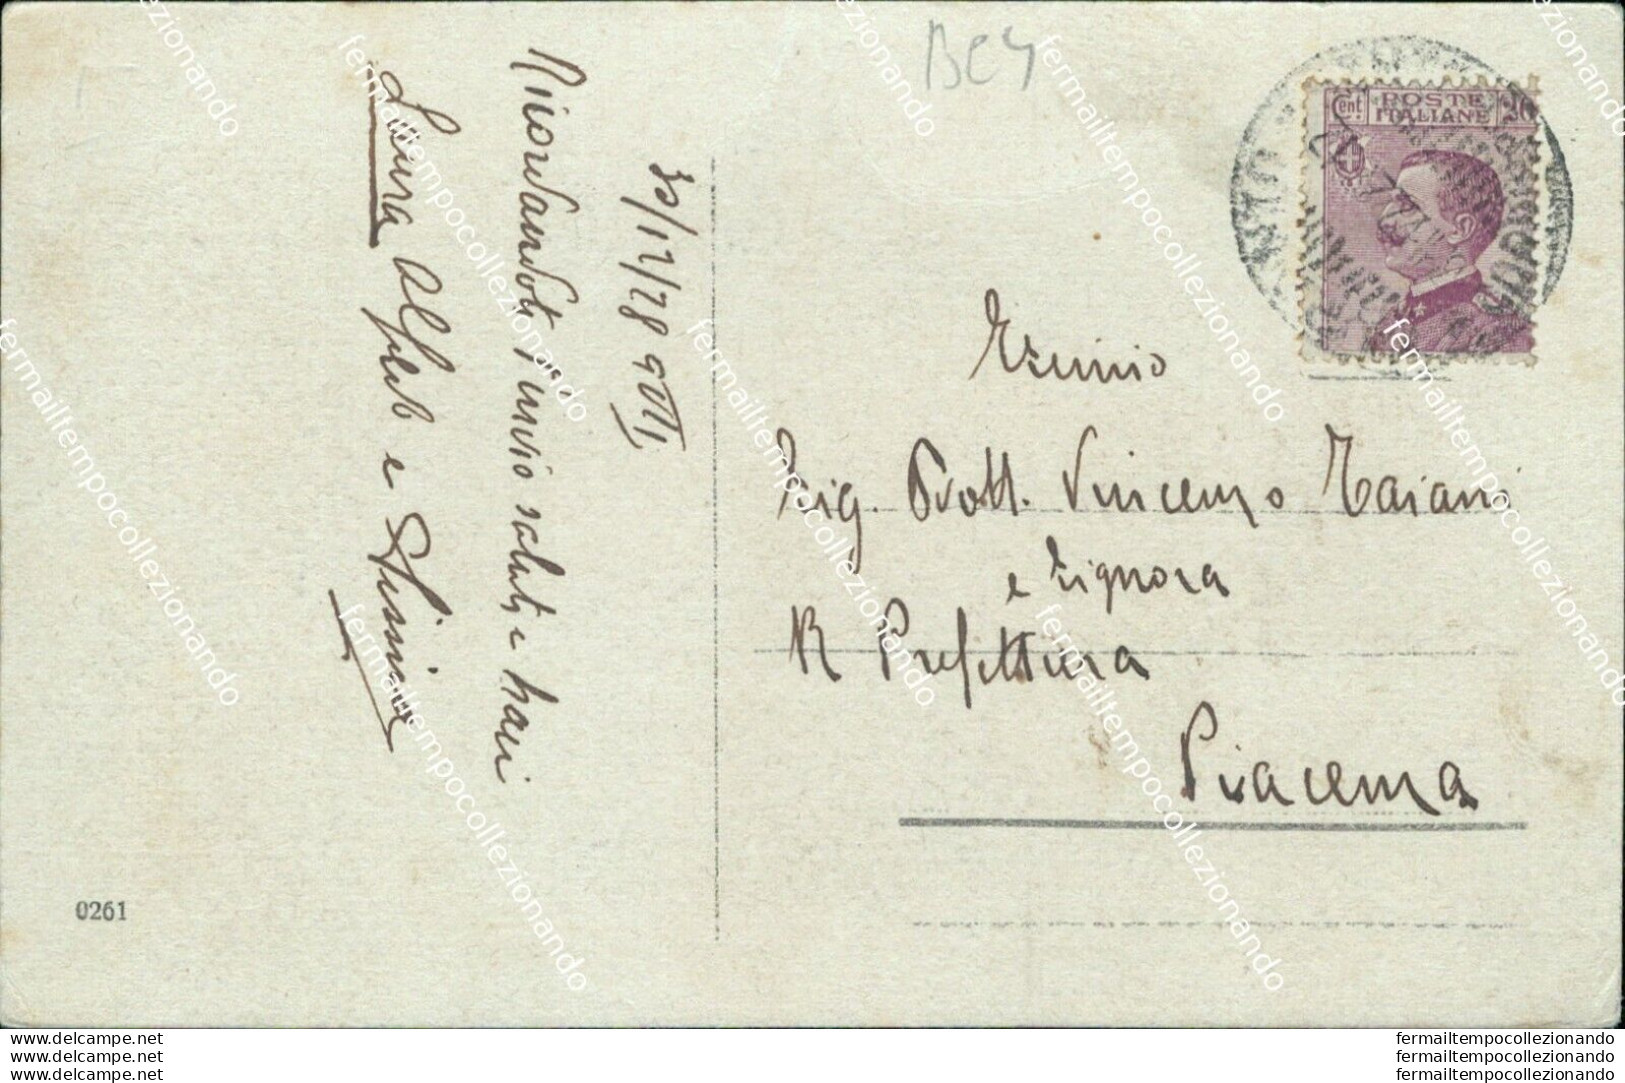 BC4
Cent. POSTE ITALIANE 20
30/12/28
Ricordandoti t'invio saluti e baci
Laura Alfredo e
Esimio
Sig. Dott. Vincenzo Taiani
e Signora
R Prefettura
Piacenza
0261
www.delcampe.net
www.delcampe.net
www.delcampe.net
fermailtempocollezionando
fermailtempocollezionando
fermailtempocollezionando